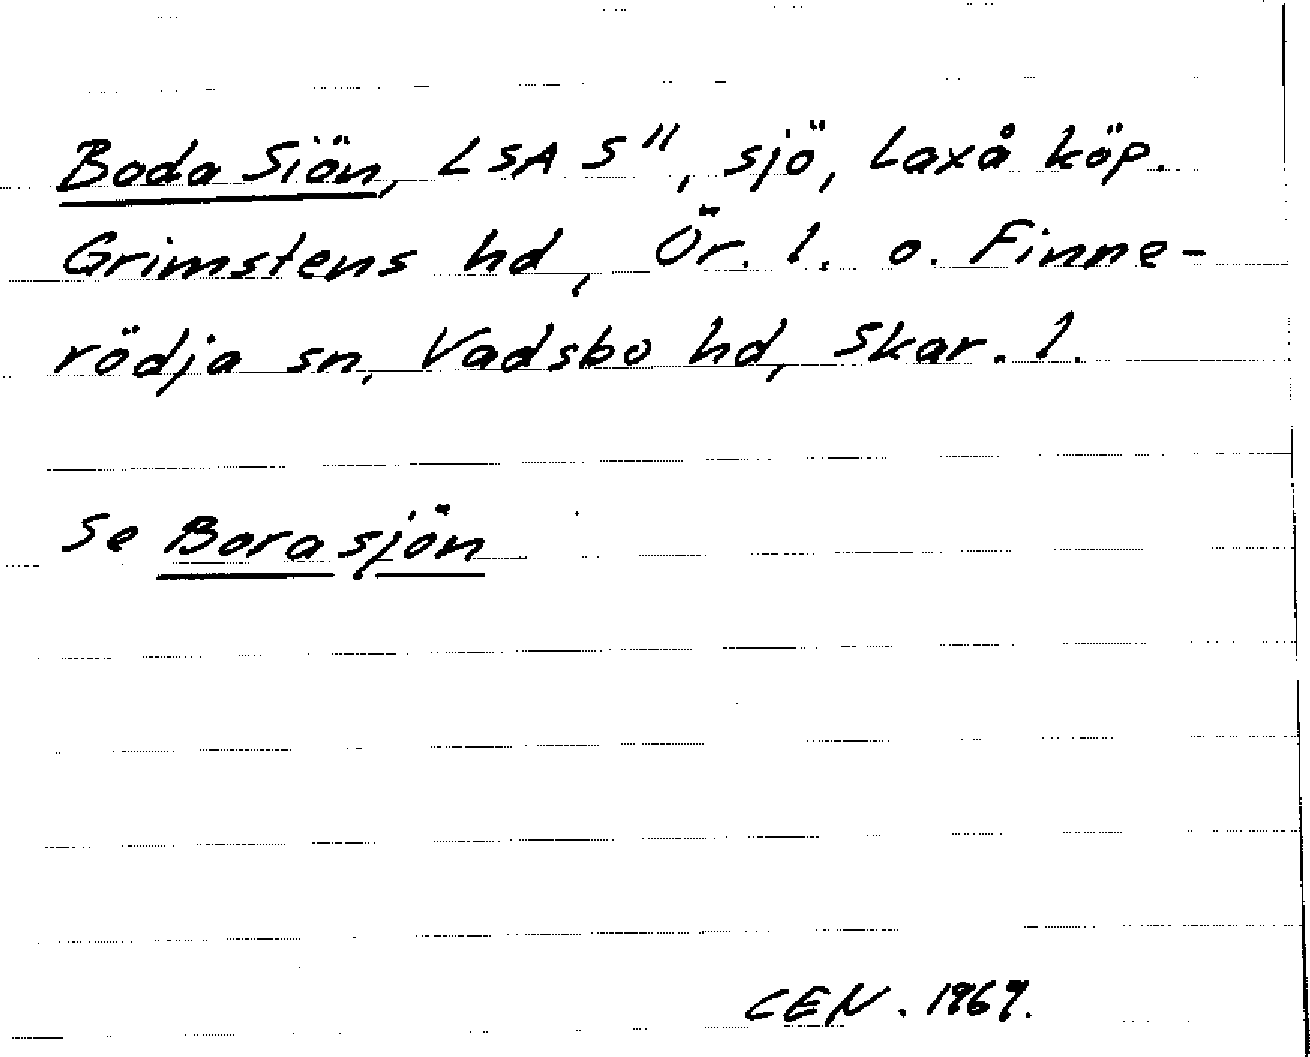 Boda Siön, LSA S", sjö, Laxå köp.
Grimstens hd, Ör. l. o. Finne-
rödja sn, Vadsbo hd, Skar. l.
Se Borasjön
CEN. 1969.